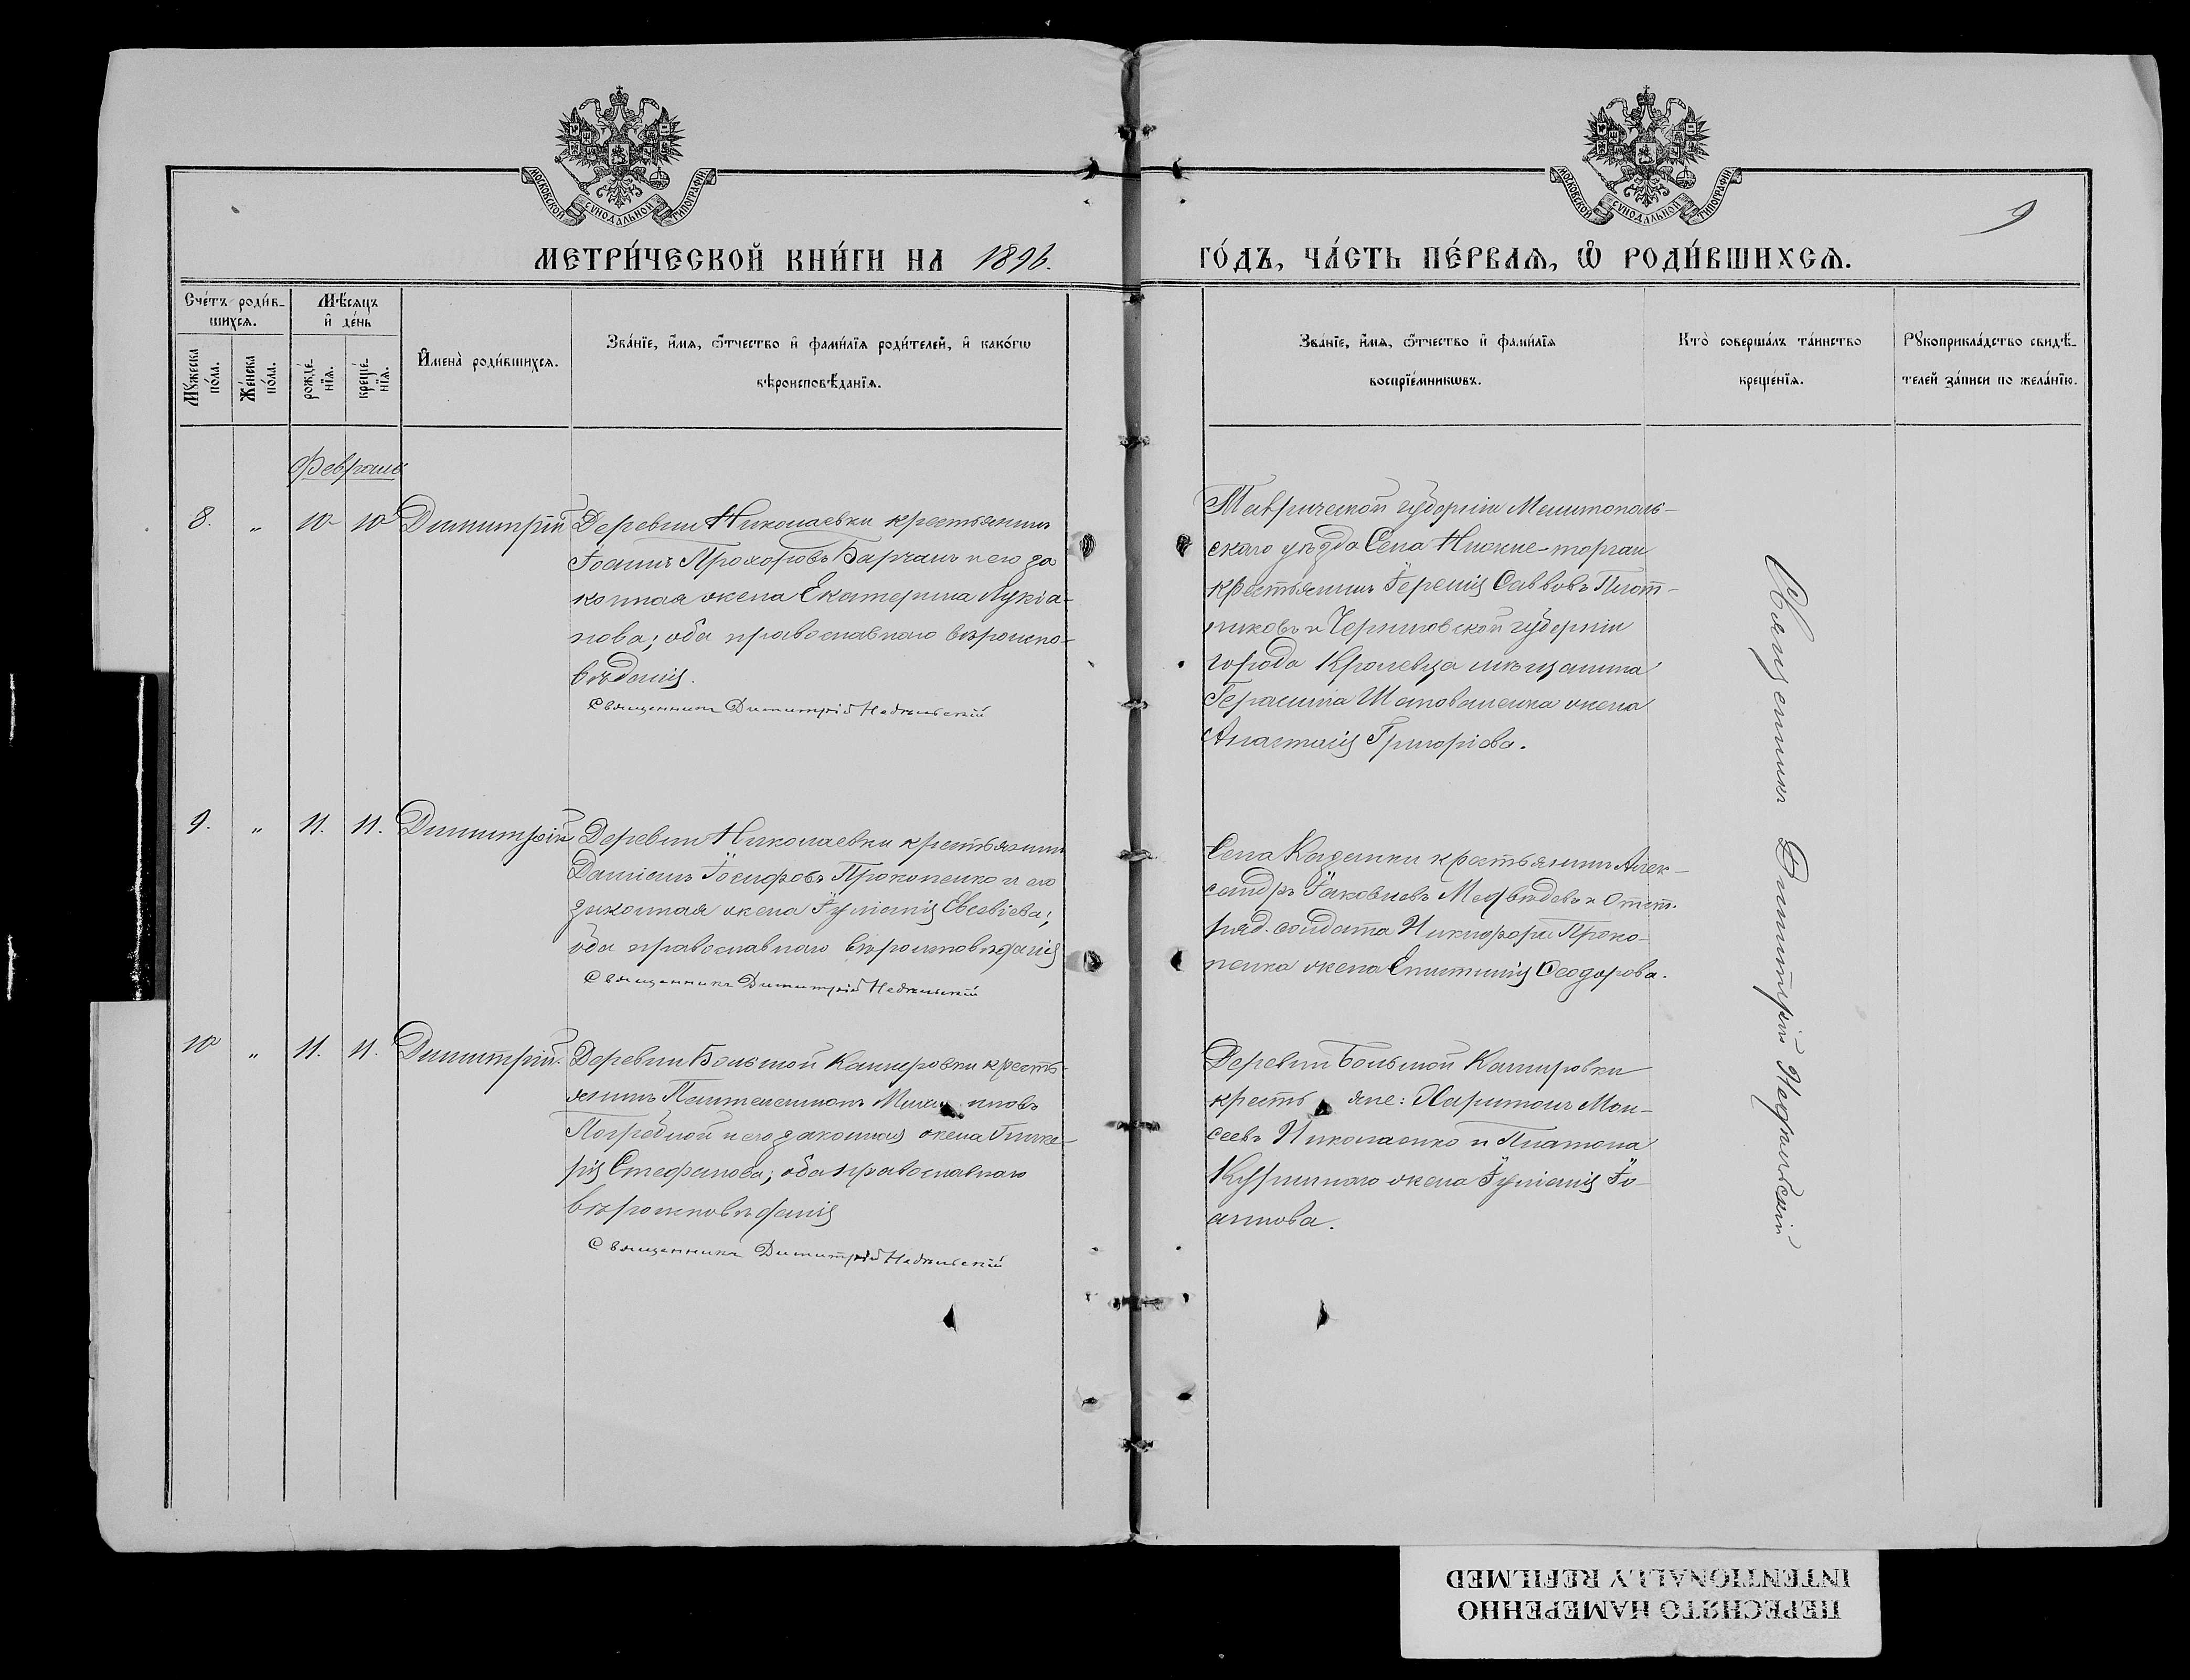 МОСКОВСКОЙ СѴНОДАЛЬНОЙ ТИПОГРАФІИ
МОСКОВСКОЙ СѴНОДАЛЬНОЙ ТИПОГРАФІИ
9
МЕТРИ́ЧЕСКОЙ КНИ́ГИ НА 1896.
ГО́ДЪ, ЧА́СТЬ ПЕ́РВАѦ, Ѽ РОДИ́ВШИХСѦ.
Сче́тъ роди́в-
шихсѧ.
Мѣ́сѧцъ
и҆ де́нь
Мꙋ́жеска
по́ла.
Же́нска
по́ла.
рожде́-
нїѧ.
креще́-
нїѧ.
И҆мена̀ роди́вшихсѧ.
Зва́нїе, и҆́мѧ, ѻ҆́тчество и҆ фами́лїѧ роди́телей, и҆ како́гѡ
вѣроисповѣ́данїѧ.
Зва́нїе, и҆́мѧ, ѻ҆́тчество и҆ фами́лїѧ
воспрїе́мникѡвъ.
Кто̀ соверша́лъ та́инство
креще́нїѧ.
Рꙋкоприкла́дство свидѣ́-
телей за́писи по жела́нїю.
Февраль
8. „ 10 10 Димитрій Деревни Николаевки крестьянинъ
Іоаннъ Прохоровъ Барчанъ и его за
конная жена Екатерина Лукіа-
нова; оба православнаго вѣроиспо-
вѣданія.
Священникъ Димитрій Недѣльскій
Таврической губерніи Мелитополь-
скаго уѣзда Села Нижне-торгаи
крестьянинъ Іеремія Савв овъ Плот-
никовъ и Черниговской губерніи
города Кролевца мѣщанина
Герасима Шаповаленка жена
Анастасія Григоріева.
9. „ 11. 11. Димитрій Деревни Николаевки крестьянинъ
Даміанъ Іосифовъ Прокопенко и его
законная жена Іуліанія Евсевіева;
оба православнаго вѣроисповѣданія
Священникъ Димитрій Недѣльскій
Села Каденки крестьянинъ Алек-
сандръ Іаковлевъ Медвѣдевъ и Отст.
ряд. солдата Никифора Проко-
пенка жена Епистимія Ѳеодорова.
10 „ 11. 11. Димитрій. Деревни Большой Кашировки кресть-
янинъ Пантелеимонъ Миха иловъ
Погрѣбной и его законная жена Глике-
рія Стефанова; оба православнаго
вѣроисповѣданія
Священникъ Димитрій Недѣльскій
Деревни Большой Кашировки
кресть яне: Харитонъ Мои-
сеевъ Николаенко и Платона
жена Іуліанія Іо-
аннова.
Священникъ Димитрій Недѣльскій
ПЕРЕСНЯТО НАМЕРЕННО
INTENTIONALLY REFILMED